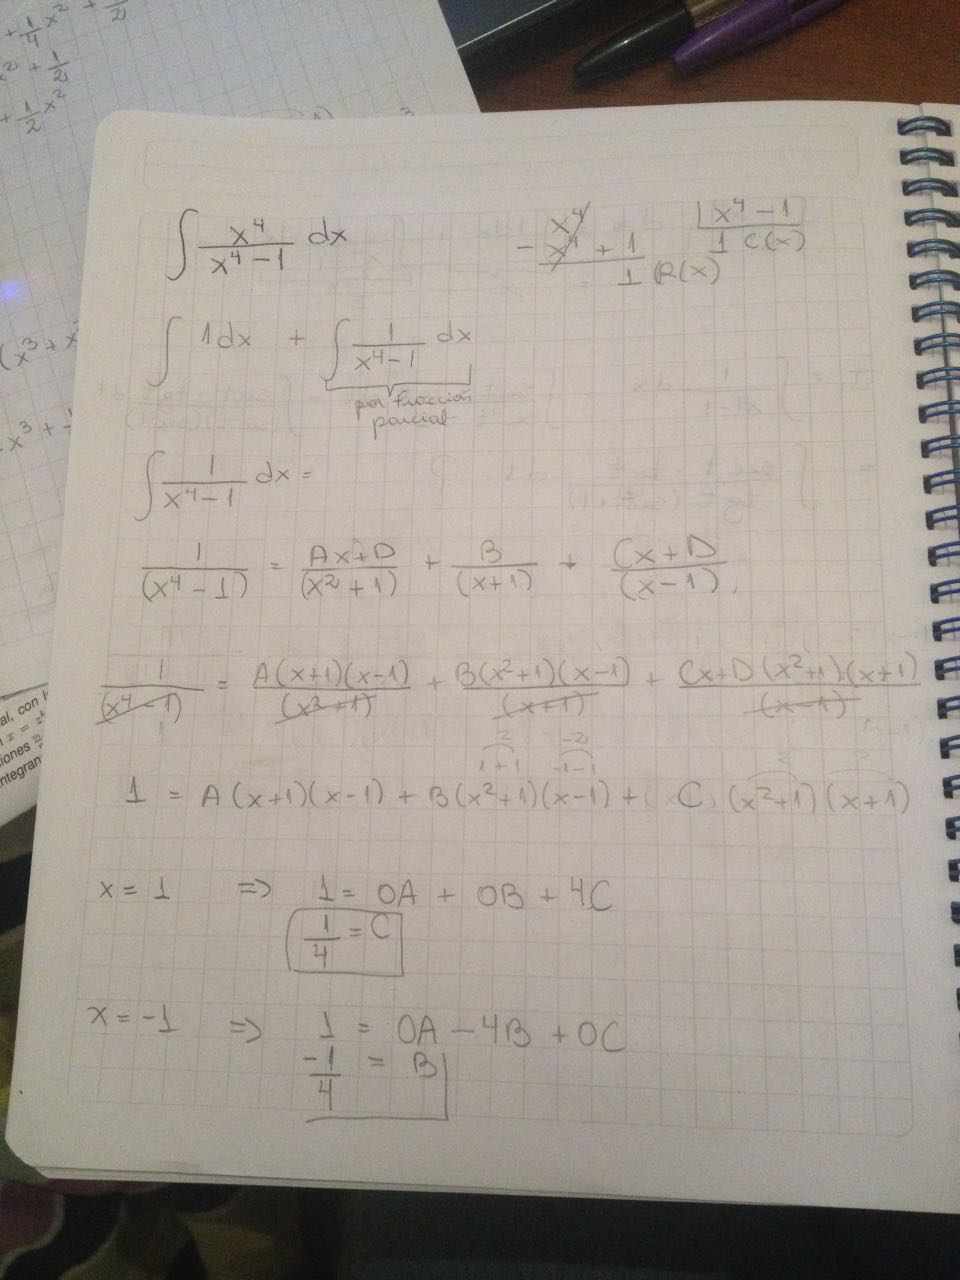 + 1/4 x² + 1/2
x² + 1/2
+ 1/2 x²
(x³ + x
x³ +
al, con
n x =
iones
integran
∫ x⁴/(x⁴ − 1) dx
x⁴ |x⁴ − 1
− x⁴ + 1 1 C(x)
1 R(x)
∫ 1dx + ∫ 1/(x⁴−1) dx
por fracción
parcial
∫ 1/(x⁴−1) dx =
1/(x⁴ − 1) = (Ax+D)/(x² + 1) + B/(x+1) + (Cx+D)/(x−1)
1/(x⁴ − 1) = A(x+1)(x−1)/(x²+1) + B(x²+1)(x−1)/(x+1) + Cx+D(x²+1)(x+1)/(x−1)
2 −2
1+1 −1−1
1 = A(x+1)(x−1) + B(x²+1)(x−1) + C (x²+1)(x+1)
x = 1 ⇒ 1 = 0A + 0B + 4C
1/4 = C
x = −1 ⇒ 1 = 0A − 4B + 0C
−1/4 = B